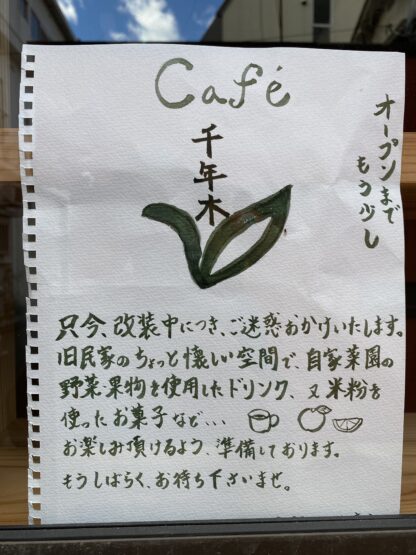 Café
千年木
オープンまで
もう少し
只今、改装中につき、ご迷惑おかけいたします。
旧民家のちょっと懐しい空間で、自家菜園の
野菜・果物を使用したドリンク、又米粉を
使ったお菓子など...
お楽しみ頂けるよう、準備しております。
もうしばらく、お待ち下さいませ。